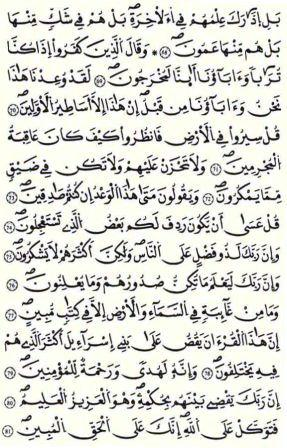 بَلِ اِدَّٰرَكَ عِلْمُهُمْ فِے اِ۬لَاخِرَةِۖ بَلْ هُمْ فِے شَكّٖ مِّنْهَا
بَلْ هُم مِّنْهَا عَمُونَۖ ٦٨ وَقَالَ اَ۬لذِينَ كَفَرُوٓاْ إِذَا كُنَّا
تُرَٰباٗ وَءَابَآؤُنَآ أَىِٕنَّا لَمُخْرَجُونَۖ ٦٩ لَقَدْ وُعِدْنَا هَٰذَا
نَحْنُ وَءَابَآؤُنَا مِن قَبْلُۖ إِنْ هَٰذَآ إِلَّآ أَسَٰطِيرُ اُ۬لَاوَّلِينَۖ ٧٠
قُلْ سِيرُواْ فِے اِ۬لَارْضِ فَانظُرُواْ كَيْفَ كَانَ عَٰقِبَةُ
اُ۬لْمُجْرِمِينَۖ ٧١ وَلَا تَحْزَنْ عَلَيْهِمْ وَلَا تَكُن فِے ضَيْقٖ
مِّمَّا يَمْكُرُونَۖ ٧٢ وَيَقُولُونَ مَتَىٰ هَٰذَا اَ۬لْوَعْدُ إِن كُنتُمْ صَٰدِقِينَۖ ٧٣
قُلْ عَسَىٰٓ أَنْ يَّكُونَ رَدِفَ لَكُم بَعْضُ اُ۬لذِے تَسْتَعْجِلُونَۖ ٧٤
وَإِنَّ رَبَّكَ لَذُو فَضْلٍ عَلَى اَ۬لنَّاسِ وَلَٰكِنَّ أَكْثَرَهُمْ لَا يَشْكُرُونَۖ ٧٥
وَإِنَّ رَبَّكَ لَيَعْلَمُ مَا تُكِنُّ صُدُورُهُمْ وَمَا يُعْلِنُونَۖ ٧٦
وَمَا مِنْ غَآئِبَةٖ فِے اِ۬لسَّمَآءِ وَالَارْضِ إِلَّا فِے كِتَٰبٖ مُّبِينٍۖ ٧٧
إِنَّ هَٰذَا اَ۬لْقُرْءَانَ يَقُصُّ عَلَىٰ بَنِےٓ إِسْرَآءِيلَ أَكْثَرَ اَ۬لذِے هُمْ
فِيهِ يَخْتَلِفُونَۖ ٧٨ وَإِنَّهُۥ لَهُدىٗ وَرَحْمَةٞ لِّلْمُؤْمِنِينَۖ ٧٩
إِنَّ رَبَّكَ يَقْضِے بَيْنَهُم بِحُكْمِهِۦۖ وَهُوَ اَ۬لْعَزِيزُ اُ۬لْعَلِيمُۖ ٨٠
فَتَوَكَّلْ عَلَى اَ۬للَّهِۖ إِنَّكَ عَلَى اَ۬لْحَقِّ اِ۬لْمُبِينِۖ ٨١